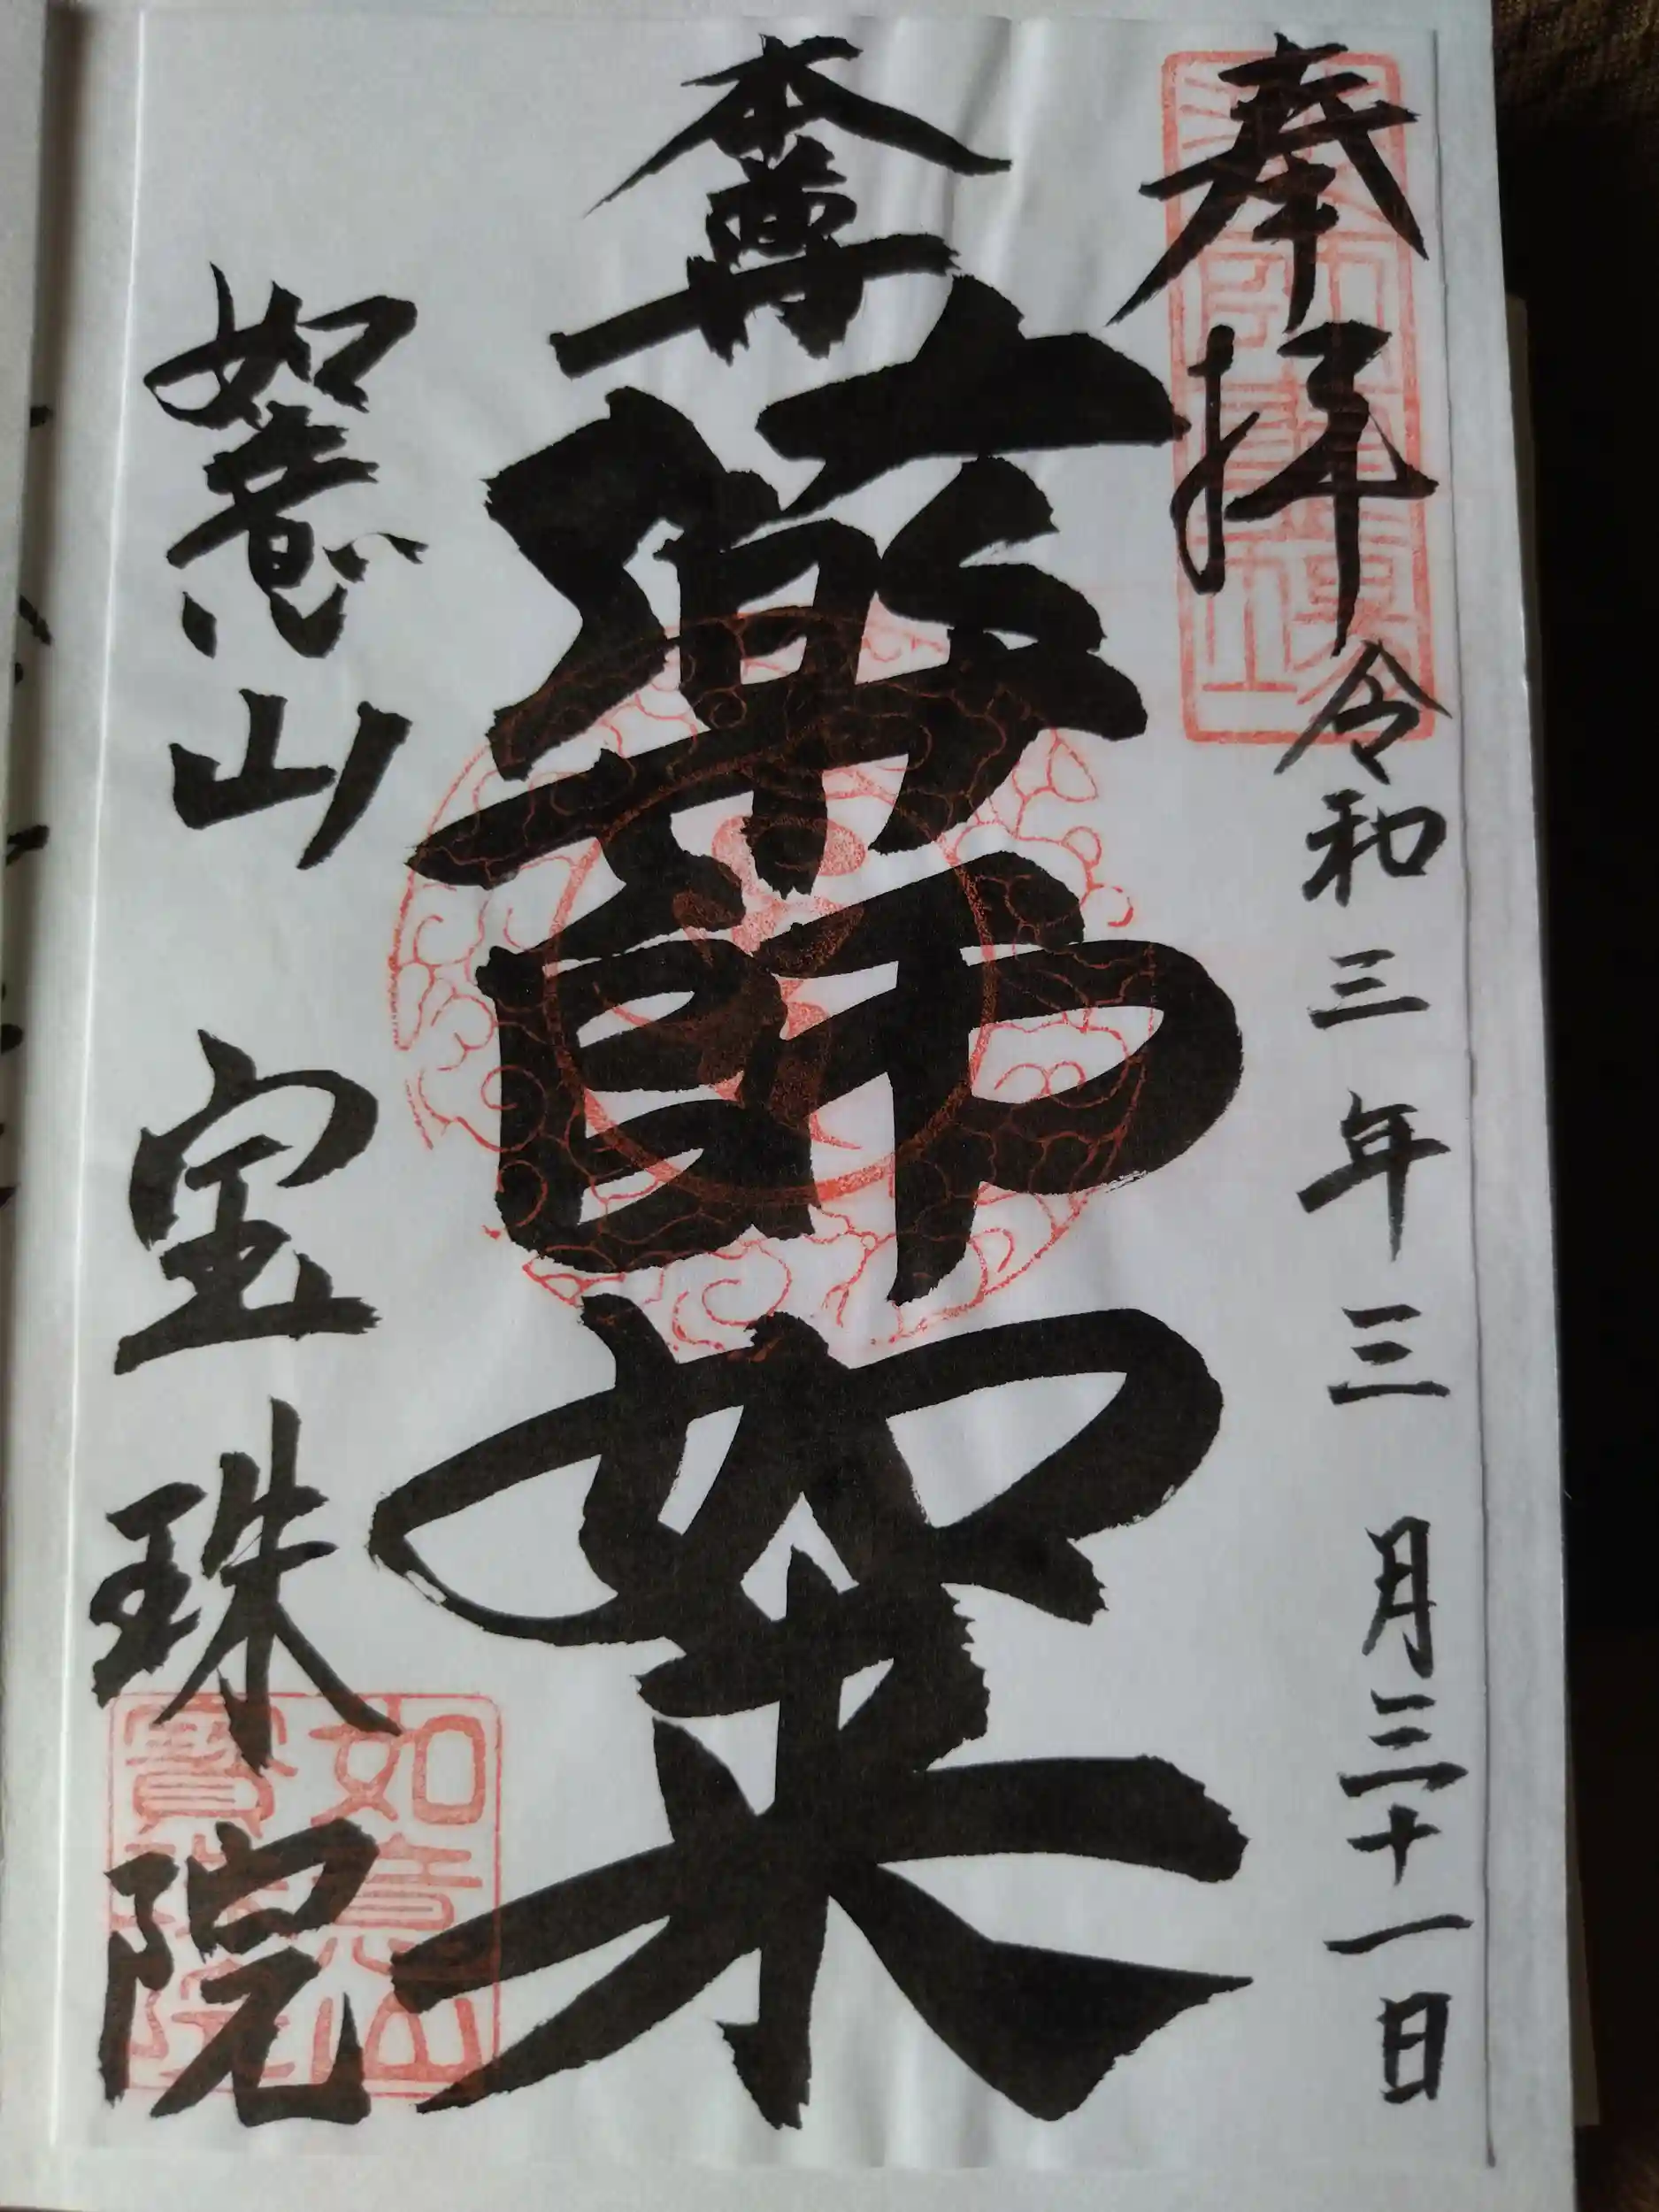 奉拝 令和三年三月三十一日
本尊 薬師如来
如意山 宝珠院
如意山
寶珠院